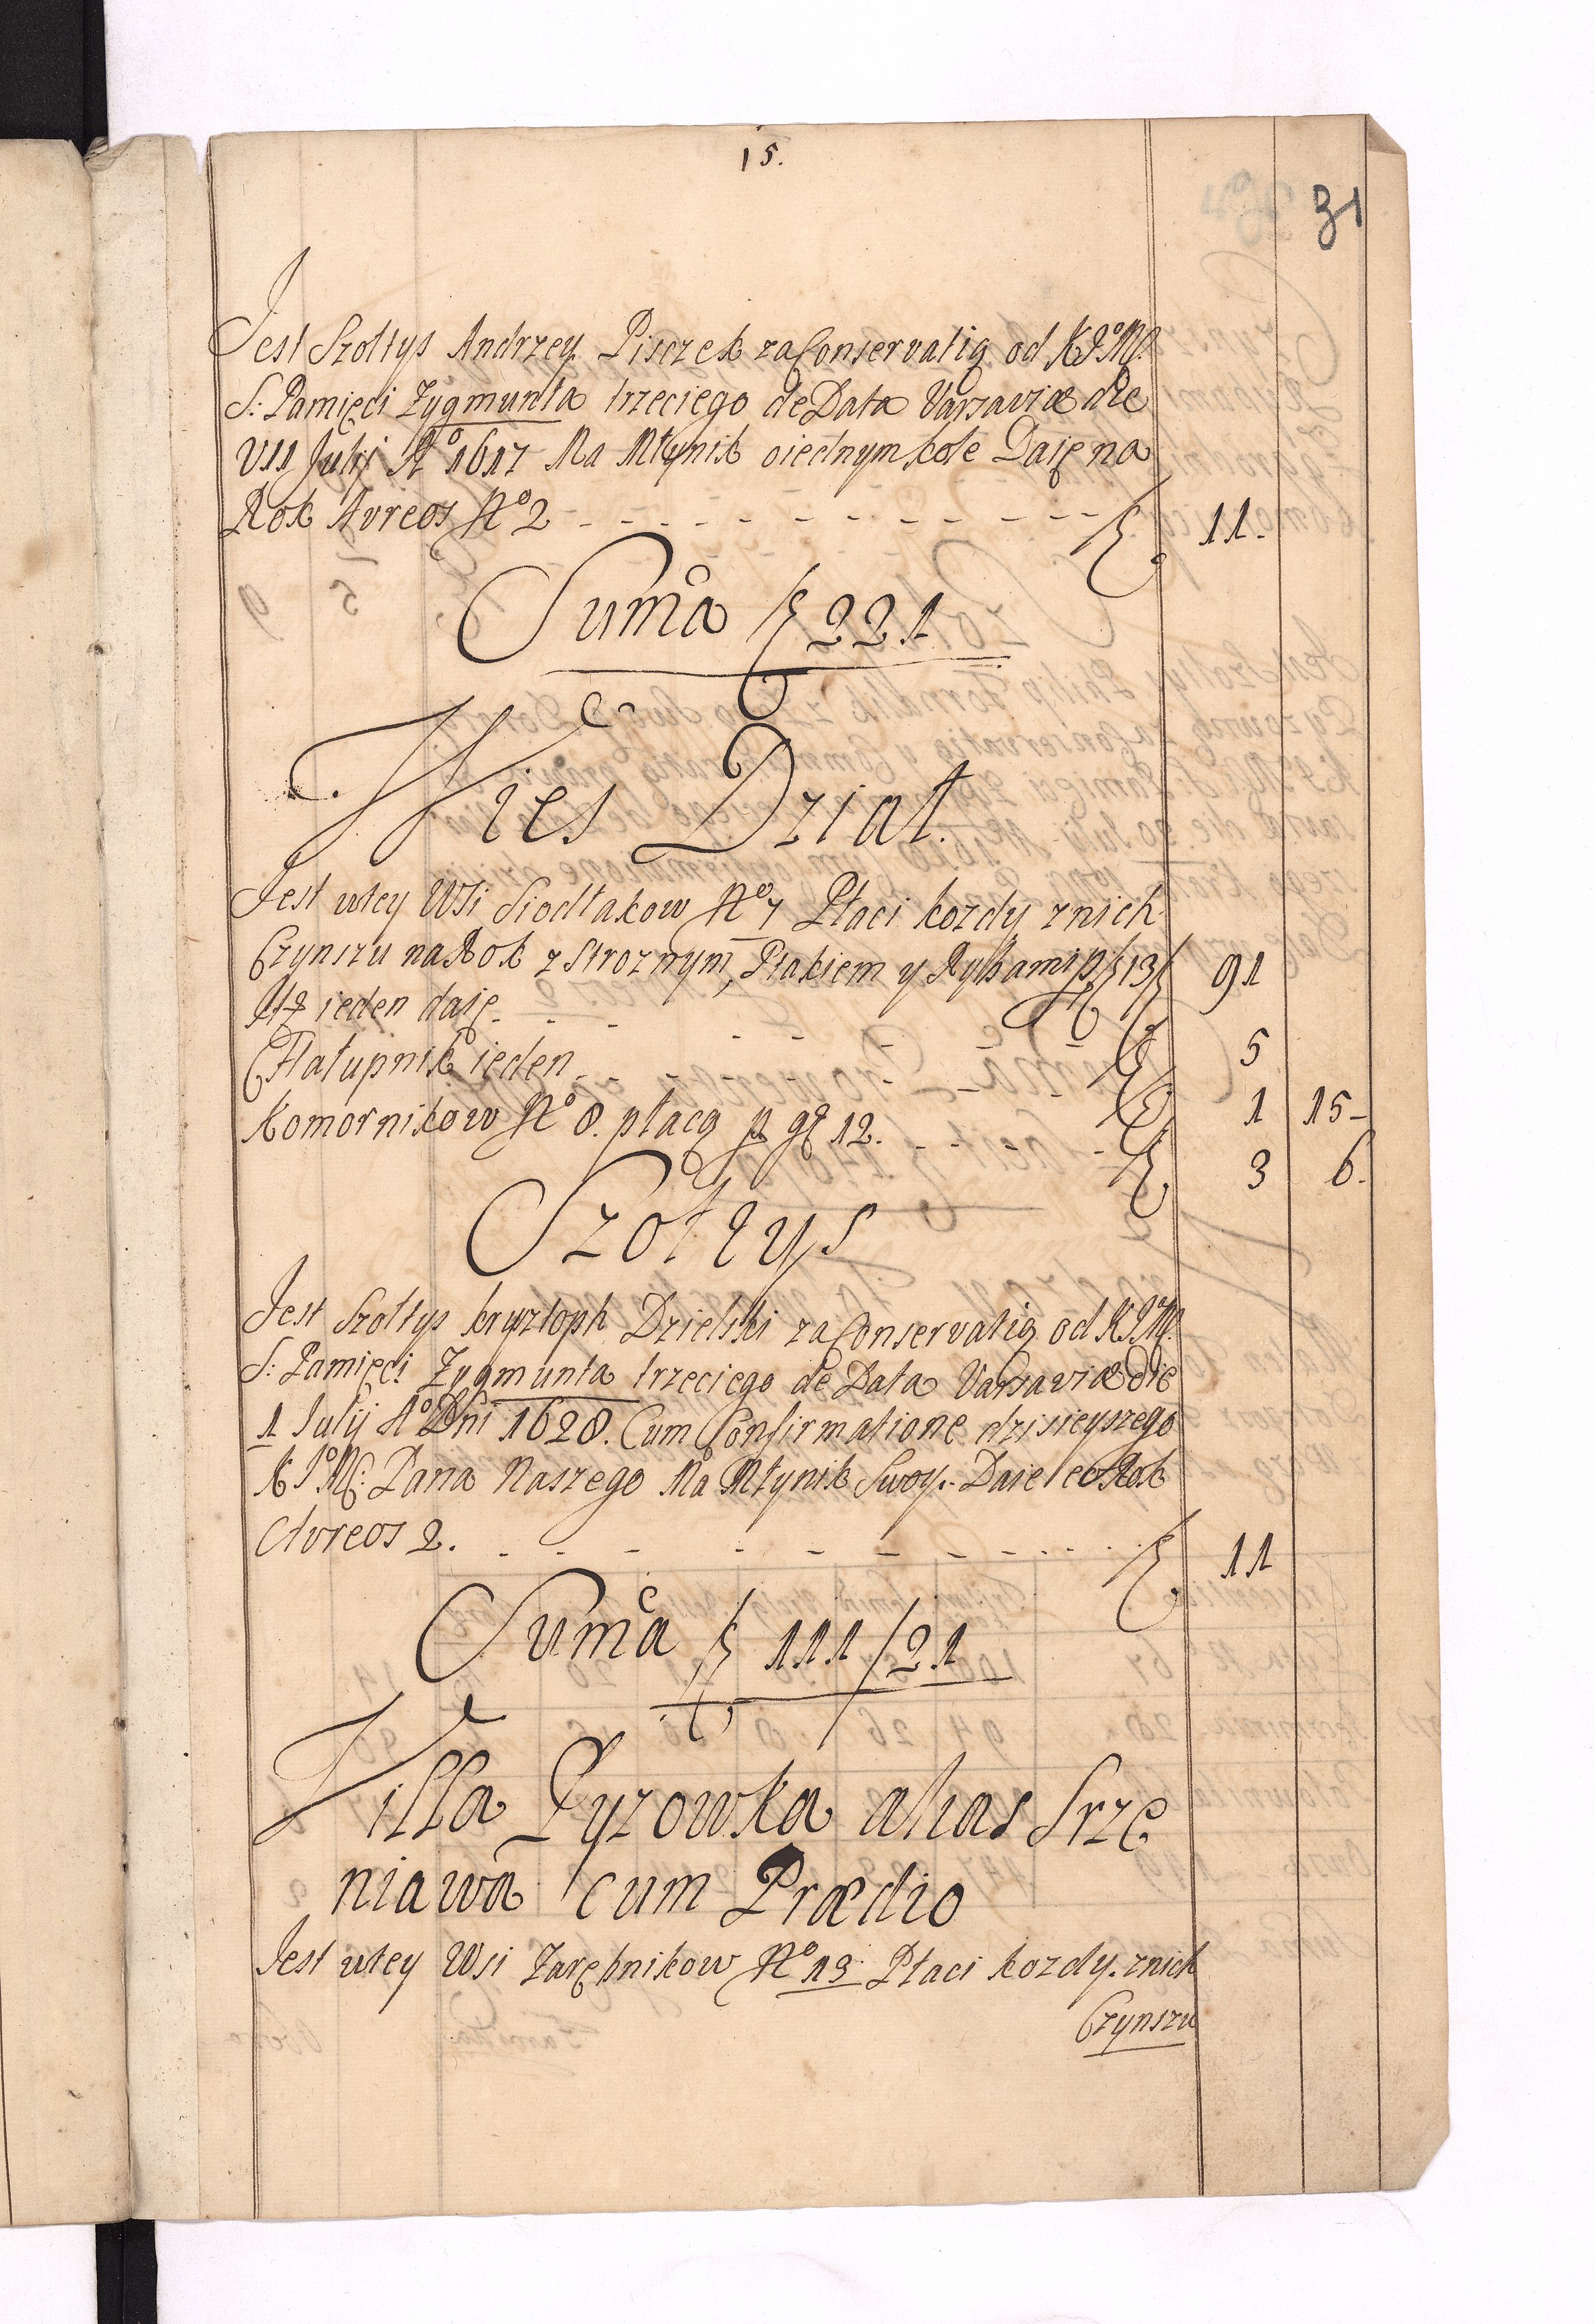 15.
31
Jest Szołtys Andrzey Pisczek za Conservatią od K JoMę.
S: Pamięci Zygmunta trzeciego de Data Varsaviæ die
VII Julij Ao 1617 Ma Młynik o iednym kole Daię na
Rok Avreos No 2 - - - - - - - - - - - - - - fl. 11.
Suma fl 221
Wies Dział.
Jest wtey Wsi Siodłakow No 7 Płaci kozdy znich
Czynszu na Rok z stroznym, Ptakiem y Rybami p fl 13 fl 91
ieden daię - - - - - - - fl 5
Chałupnik ieden - - - - - - fl 1 15-
Komornikow No 8. płacą p gr 12. - - - - fl 3 6.
Szołtys
Jest Szołtys krysztoph Dzielski za Conservatią od K JoMę.
S: Pamięci Zygmunta trzeciego de Data Varsaviæ die
1 Julij Ao Dni 1628. Cum Confirmatione dzisieyszego
K JoMę: Pana Naszego Ma Młynik Swoy. Daie co Rok
Avreos 2. - - - - - - - - - - - fl. 11
Suma fl 111/21
Villa Pyzowka alias Srze
niawa cum Prædio
Jest wtey Wsi Zarębnikow No 13 Płaci kozdy. znich
Czynszu